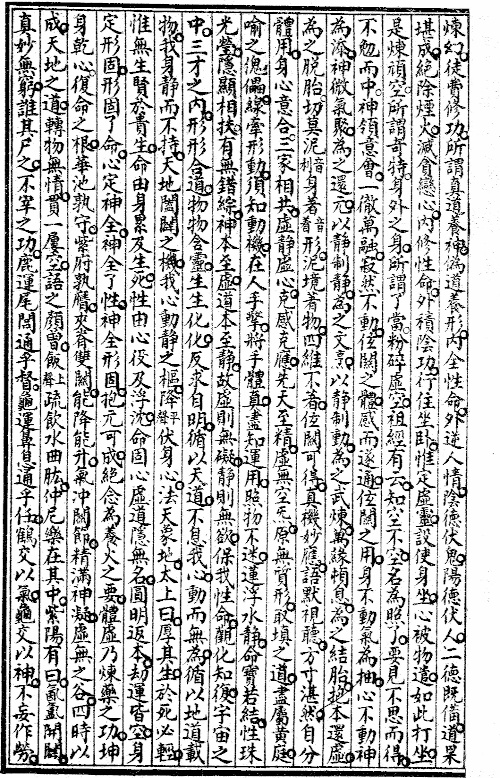 煉幻徒費修功所謂真道養神偽道養形內全性命外逆人情陰德伏鬼陽德伏人二德既備道果
堪成絕除煙火滅貪戀心內修性命外積陰功行住坐臥惟定虛靈設使身坐心被物遣如此打坐
是煉頑空所謂奇特身外之身所謂了當粉碎虛空祖經有云知空不空名為照了要見不思而得
不勉而中神領意會一微萬融寂然不動玄關之體感而遂通玄關之用身不動氣為抽心不動神
為添神微氣聚為之還元以靜制靜為之文烹以靜制動為之武煉萬緣頓息為之結胎抄本還虛
為之脫胎切莫泥音利身著音着形泥境著物四維不著玄關可得真機妙應語默視聽方寸湛然自分
體用身心意合三家相共虛靜虛心克感克應先天至精虛無空炁原無質形敢填之道盡屬黃庭
喻之傀儡線牽形動須知動機在人手擎將手體真盡知運用照物不迷蓮浮水靜命寶若結性珠
光瑩隱顯相扶有無錯綜神本至虛道本至靜故虛則無礙靜則無欲保我性命觀化知復宇宙之
中三才之內形形合道物物含靈生生化化反求自明循以天道不息我心動而無為循以地道載
物我身靜而不持天地闔闢之機我心動靜之樞降聲平伏身心法天象地太上曰厚其生於死必輕
惟無生賢於貴生命由身累及生死性由心役及浮沈命固心虛道隱無名圓明返本劫運皆空身
定形固形固了命心定神全神全了性神全形固抱元可成絕念為養火之要體虛乃煉藥之功坤
身乾心復命之根華池孰守紫府孰膺夾脊雙關能降能升氣沖關節精滿神凝虛無之谷四時以
成天地之道轉物無情貫一屢空語之顏曾飯聲上疏飲水曲肱仲尼樂在其中紫陽有曰氤氳開闢
真妙無窮誰其尸之不宰之功鹿運尾閭通乎督龜運鼻息通乎任鶴交以氣龜交以神不妄作勞